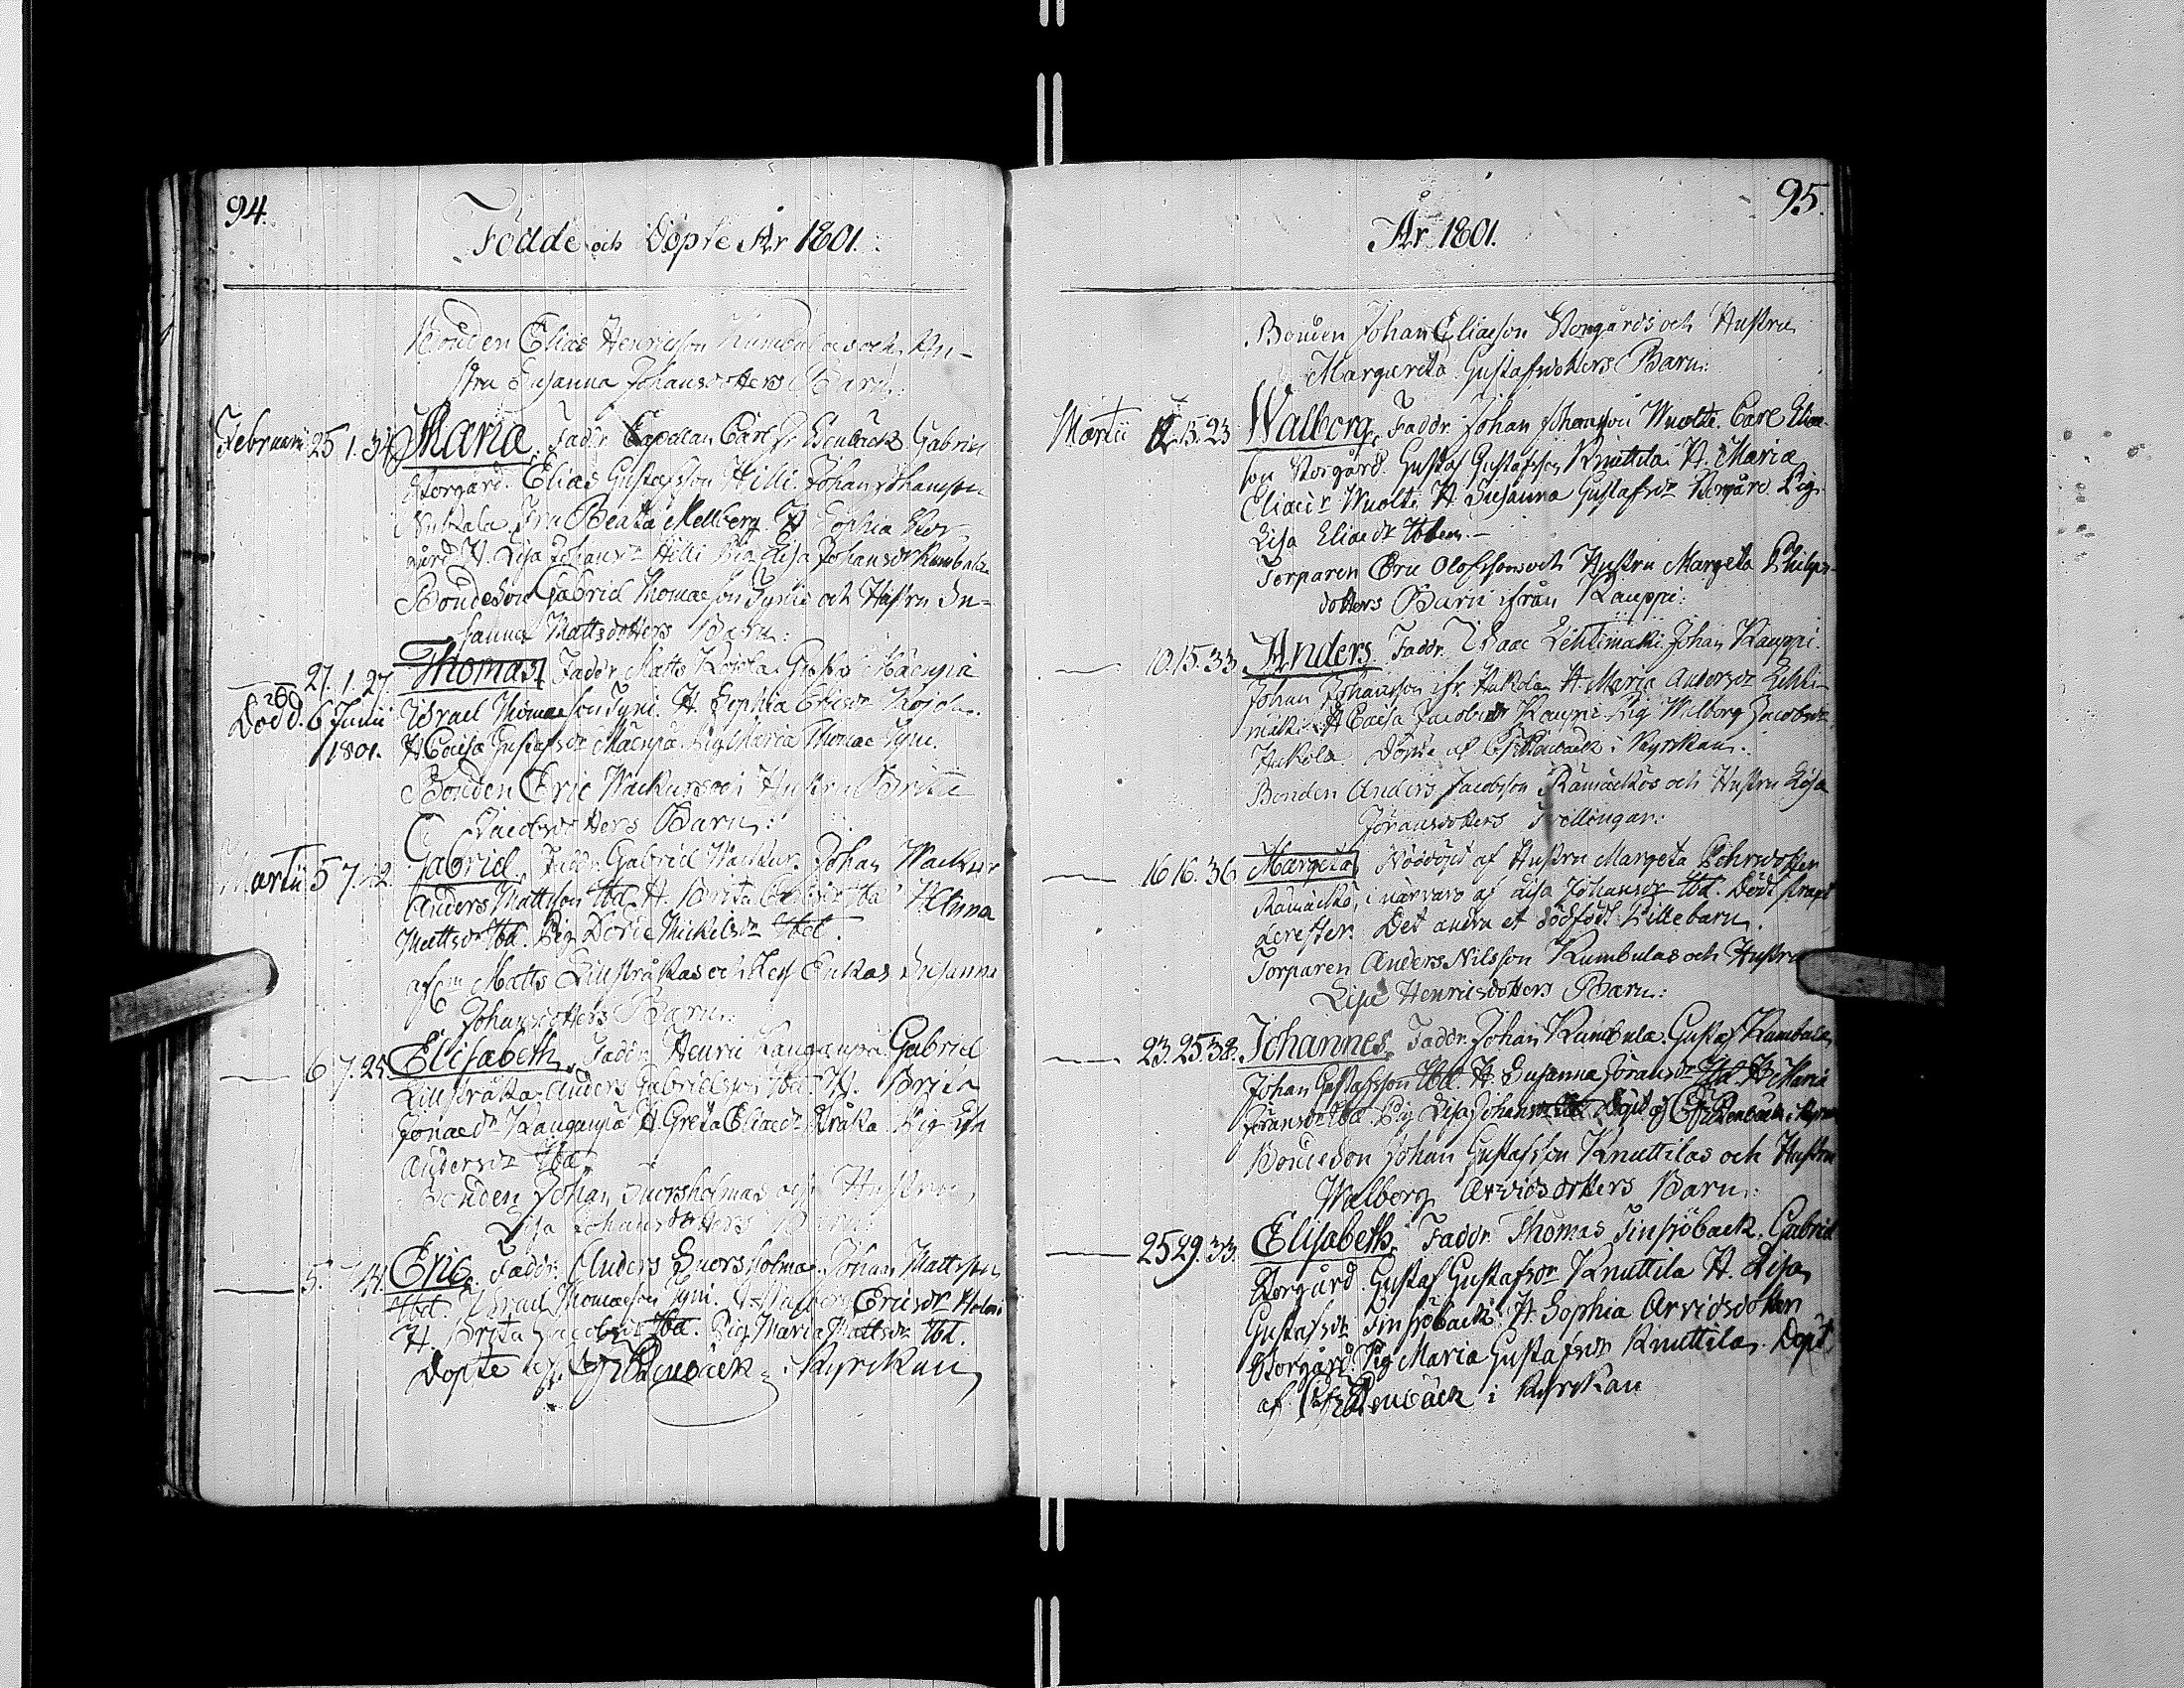 94.
Födde och Döpte År 1801.
Bonden Elias Henricsson Kumbulas och Hu-
stru Susanna Johansdotters Barn:
Februarii 25 1. 34 Maria. Faddr Capellan Carl Fr Estubäck Gabriel
Storgård. Elias Gustafsson Hilli. Johan Johansson
Fru Beata Mellberg. H. Sophia Stor-
gård H. Lisa Johansdr Hilli Pig. Lisa Johansdr Kumbula
Bondeson Gabriel Thomasson Tynis och Hustru Su-
sanna Mattsdotters Barn:
27. 1. 27. Thomas. Faddr Matts Gustaf Mäenpä
Död d. 6 Junii 1801. Israel Thomasson Tyni. H. Sophia Ericsdr
H Caisa Gustafsdr Mäenpä. Pig Maria Thomaedr Tyni.
Bonden Eric Wackurs och Hustru Brita
Jacobsdotters Barn:
Martii 5 7. 42. Gabriel. Faddr Gabriel Wackur. Johan Wackur
Anders Mattsson Ibd. H. Brita Ibd H Anna
Mattsdr Ibd. Pig Doris Mickelsdr Ibd.
af:ne Matts Lillstråkas och dess Enkas Susanna
Johansdotters Barn:
6 7. 25. Elisabeth. Faddr Henric Kangaspä. Gabriel
Lillstråka. Anders Gabrielsson Ibd. H. Brita
Jonaedr Kangaspä H Greta Eliaedr Stråka. Pig Lisa
Andersdr Ibd.
Bonden Johan Suorsholmas och Hustru
Lisa Johansdotters Barn:
5. 7 44. Eric. Faddr. Anders Suorsholma. Johan Mattsson
Ibd. Israel Thomasson Tyni. H. Walborg Ericsdr
H. Brita Jacobsdr Ibd. Pig. Maria Mattsdr Ibd.
Döpte af i Kyrckan
95.
År 1801.
Bonden Johan Eliaeson Storgårds och Hustru
Margareta Gustafsdotters Barn:
Martii 12. 15. 23 Walborg. Faddr Johan Johansson Wuolte. Carl Eliae-
son Storgård. Gustaf Gustafsson Knuttila. H. Maria
Eliaedr Wuolti H Susanna Gustafsdr Storgård Pig
Lisa Eliaedr Ibdem.-
Torparen Eric Olofssons och Hustru Margeta Philips-
dotters Barn ifrån Kauppi:
10. 15. 33. Anders. Faddr Isaac Lehtimäki Johan Kauppi.
Johan Johansson ifr. Hukola H. Maria Andersdr Lehti-
mäki H Caisa Jacobsdr Kauppi Pig Walborg Jacobsdr
Hukola. Döpte af i Kyrckan.
Bonden Anders Jacobsson Rämäckös och Hustru Lisa
Göransdotters Tvillingar:
16 16. 36 Margeta Nöddöpt af Hustru Margeta Pehrsdotter
Rämäckö, i närvaro af Lisa Johansdr Ibd. Dödt strapt
derefter. Det andra et dödfödt Gillebarn.
Torparen Anders Nilsson Kumbulas och Hustru
Lisa Henricsdotters Barn:
23. 25. 38. Johannes. Faddr. Johan Kumbula. Gustaf Kumbula
Johan Gustafsson Ibd. H. Susanna Göransdr Ibd. H Maria
Göransdr Ibd. Pig Lisa Johansdr Ibd. Döpt af i Kyrckan
Bondeson Johan Gustafsson Knuttilas och Hustru
Walborg Arvidsdotters Barn:
25 29. 33. Elisabeth. Faddr Thomas Finsjöback. Gabriel
Storgård. Gustaf Gustafson Knuttila H. Lisa
Gustafsdr Finsjöback. H. Sophia Arvidsdotter
Storgård. Pig Maria Gustafsdr Knuttila. Döpt
af i Kyrckan